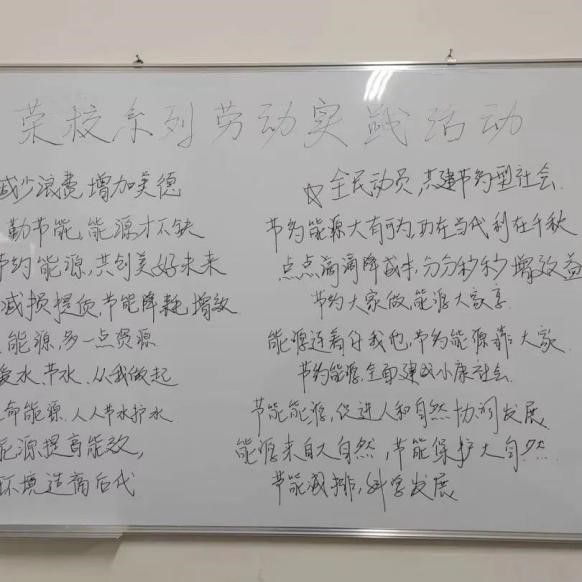 荣校系列劳动实践活动
减少浪费增加美德
勤节能,能源才不缺
节约能源,共创美好未来
减损提质,节能降耗增效
能源,多一点资源
爱水、节水、从我做起
命能源、人人节水护水
能源提高能效,
环境造福后代
☆全民动员,共建节约型社会
节约能源大有可为,功在当代利在千秋
点点滴滴降成本,分分秒秒增效益
节约大家做,能源大家享
能源连着你我他,节约能源靠大家
节约能源,全面建设小康社会
节能能源,促进人和自然协调发展
能源来自大自然,节能保护大自然
节能减排,科学发展